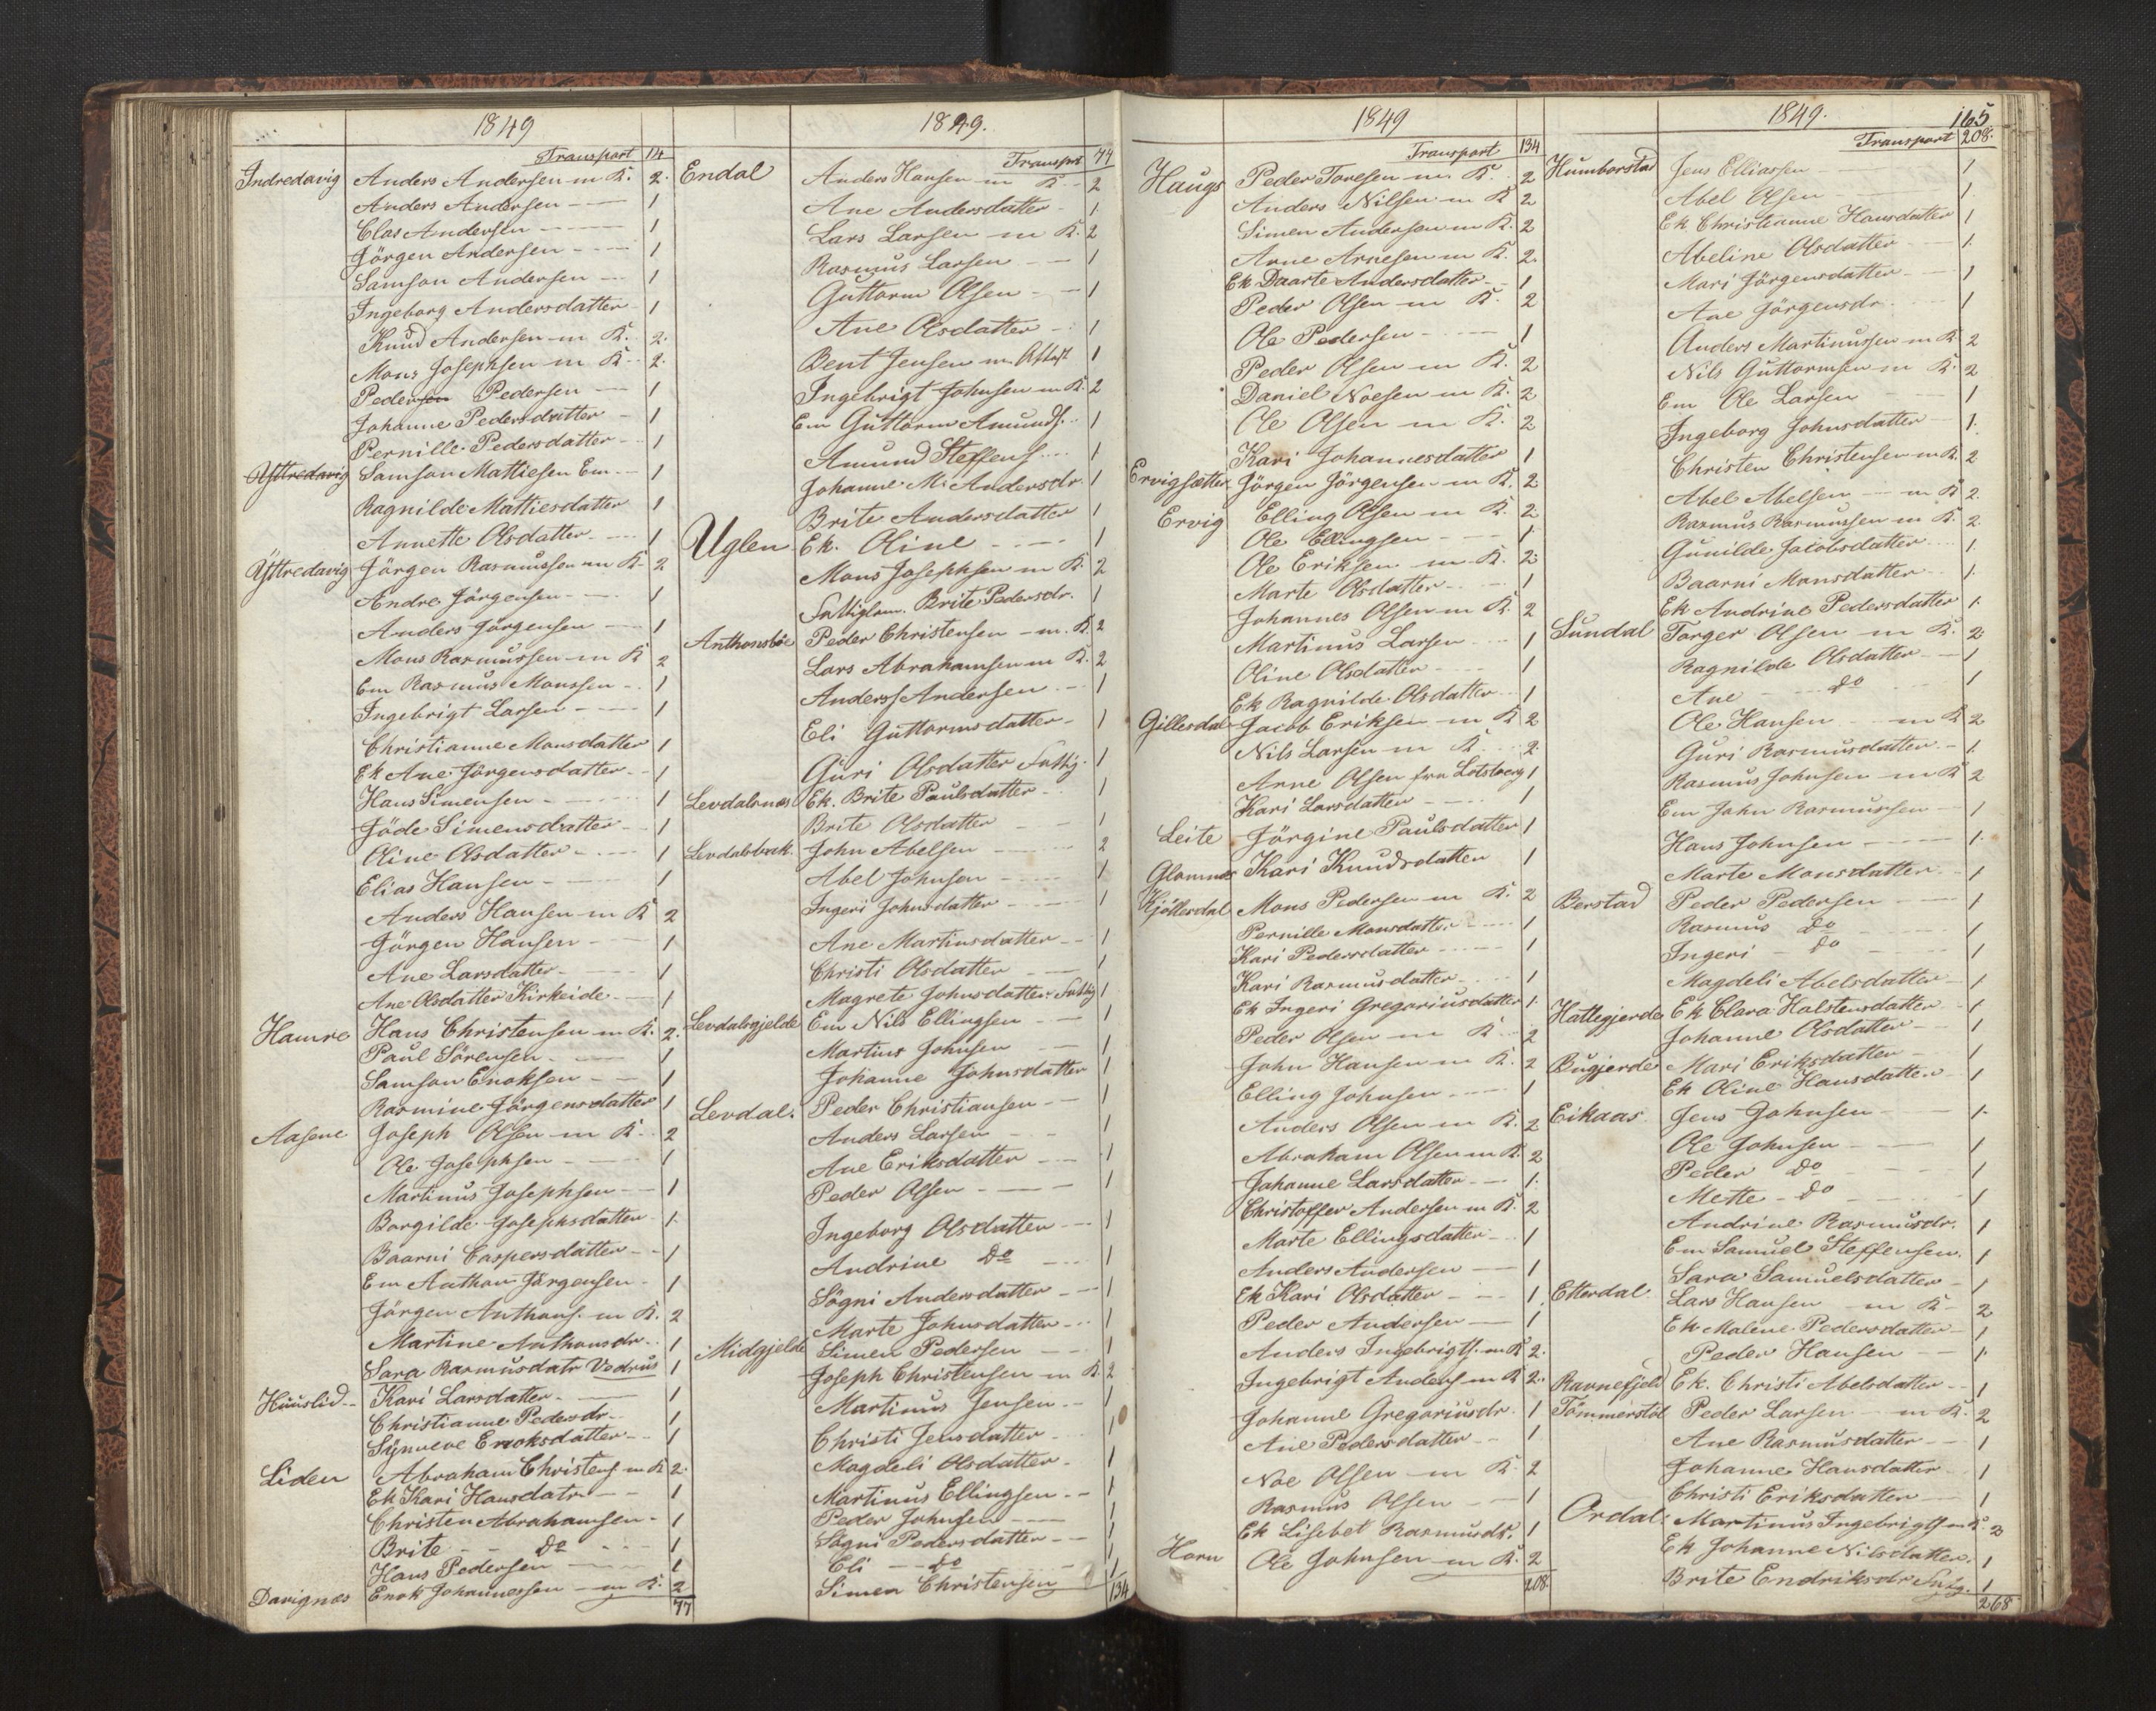 1849
Transport 14
Indredavig Anders Andersen m K. 2.
Anders Andersen 1
Clas Andersen 1
Jörgen Andersen 1
Samson Andersen 1
Ingeborg Andersdatter 1
Knud Andersen m K. 2.
Mons Josephsen m K 2.
Pedersen Pedersen 1
Johanne Pedersdatter 1
Pernille Pedersdatter 1
Yttredavig Samson Mattiesen Em 1
Ragnilde Mattiesdatter 1
Annette Olsdatter 1
Yttredavig Jörgen Rasmussen m K 2
Andre Jörgensen 1
Anders Jörgensen 1
Mons Rasmussen m K 2
Em Rasmus Monssen 1
Ingebrigt Larsen 1
Christianne Monsdatter 1
Ek Ane Jörgensdatter 1
Hans Simensen 1
Jöde Simensdatter 1
Oline Olsdatter 1
Elias Hansen 1
Anders Hansen m K 2
Jörgen Hansen 1
Ane Larsdatter 1
Ane Olsdatter Kirkeide 1
Hamre Hans Christensen m K. 2.
Paul Sörensen 1
Samson Enoksen 1
Rasmine Jörgensdatter 1
Aasene Joseph Olsen m K. 2
Ole Josephsen 1
Martinus Josephsen 1
Borgilde Josephsdatter 1.
Baarni Caspersdatter 1
Em Anthon Jörgensen 1
Jörgen Anthons. m K. 2
Martine Anthonsdr. 1
Sara Rasmusdatr Vedrus 1
Huuslid Kari Larsdatter 1
Christianne Pedersdr. 1
Synneve Enoksdatter 1
Liden Abraham Christens m K 2.
Ek Kari Hansdatr 1
Christen Abrahamsen 1
Brite Do 1
Hans Pedersen 1
Davignæs Enok Johannessen m K. 2
77
1849.
Transport 77
Endal Anders Hansen m K 2
Ane Andersdatter 1
Lars Larsen m K. 2
Rasmus Larsen 1
Guttorm Olsen 1
Ane Olsdatter 1
Bent Jensen m Attest 1
Ingebrigt Johnsen m K. 2
Em Guttorm Amunds. 1
Amund Steffens. 1
Johanne M. Andersdr. 1
Brite Andersdatter 1
Uglen Ek. Oline 1
Mons Josephsen m K. 2
Fattiglem. Brite Pedersdr. 1
Anthonsböe Peder Christensen m. K 2
Lars Abrahamsen m K. 2
Anders Andersen 1
Eli Guttormsdatter 1
Guri Olsdatter Fattig. 1
Levdalsnæs Ek. Brite Paulsdatter 1
Brite Olsdatter 1
Levdalsbak. John Abelsen 2
Abel Johnsen 1
Ingeri Johnsdatter 1
Ane Martinsdatter 1
Christi Olsdatter 1
Magrete Johnsdatter Fattig 1
Levdalsgjelde Em Nils Ellingsen 1
Martins Johnsen 1
Johanne Johnsdatter 1
Levdal. Peder Christiansen 1
Anders Larsen 1
Ane Eriksdatter 1
Peder Olsen 1
Ingeborg Olsdatter 1
Andrine Do 1
Sögni Andersdatter 1
Marte Johnsdatter 1
Midgjelde Simen Pedersen 1
Joseph Christensen m K 2
Martinus Jensen 1
Christi Jensdatter 1
Magdeli Olsdatter 1
Martinus Ellingsen 1
Peder Johnsen 1
Sögni Pedersdatter 1
Eli Do 1
Simen Christensen 1
134
1849
Transport 134
Haugs Peder Toresen m K. 2
Anders Nilsen m K 2
Simen Andersen m K. 2
Arne Arnesen m K. 2.
Ek Daarte Andersdatter 1
Peder Olsen m K. 2
Ole Pedersen 1
Peder Olsen m K. 2
Daniel Noesen m K. 2
Ole Olsen m K. 2
Kari Johannesdatter 1
Ervigsætter Jörgen Jörgensen m K. 2
Ervig Elling Olsen m K. 2
Ole Ellingsen 1
Ole Eriksen m K. 2
Marte Olsdatter 1
Johannes Olsen m K. 2
Martinus Larsen 1
Oline Olsdatter 1
Ek Ragnilde Olsdatter 1
Gillesdal Jacob Eriksen m K 2
Nils Larsen m K 2.
Arne Olsen fra Lotsberg 1
Kari Larsdatter 1
Leite Jörgine Paulsdatter 1
Glommæ Kari Knudsdatter 1
Kjöllesdal Mons Pedersen m K. 2
Pernille Monsdatter 1
Kari Pedersdatter 1
Kari Rasmusdatter 1
Ek Ingeri Gregariusdatter 1.
Peder Olsen m K 2
John Hansen m K. 2
Elling Johnsen 1
Anders Olsen m K. 2
Abraham Olsen m K. 2
Johanne Larsdatter 1.
Christoffer Andersen m K. 2
Marte Ellingsdatter 1
Anders Andersen 1
Ek Kari Olsdatter 1
Peder Andersen 1
Anders Ingebrigts. m K 2.
Ingebrigt Anders m K 2.
Johanne Gregariusdr. 1
Ane Pedersdatter 1
Noe Olsen m K. 2
Rasmus Olsen 1
Ek Lisebet Rasmusdr. 1
Horn Ole Johnsen m K. 2
208.
1849. 165
Transport 208.
Humborstad Jens Elliassen 1
Abel Olsen 1
Ek Christianne Hansdatter 1
Abeline Olsdatter 1.
Mari Jörgensdatter 1
Ane Jörgensdr. 1
Anders Martinussen m K 2
Nils Guttormsen m K. 2
Em Ole Larsen 1
Ingeborg Johnsdatter 1.
Christen Christensen m K. 2
Abel Abelsen m K 2.
Rasmus Rasmussen m K. 2
Gunilde Jacobsdatter 1.
Baarni Monsdatter 1.
Ek Andrine Pedersdatter 1.
Lundal Torger Olsen m K. 2.
Ragnilde Olsdatter 1
Ane do 1
Ole Hansen m K 2
Guri Rasmusdatter 1.
Rasmus Johnsen m K 2
Em John Rasmussen 1
Hans Johnsen 1.
Marte Monsdatter 1
Berstad Peder Pedersen 1
Rasmus Do 1
Ingeri do 1
Magdeli Abelsdatter 1
Hattegjerde Ek Clara Halstensdatter 1
Johanne Olsdatter 1
Bugjerde Mari Eriksdatter 1
Ek Oline Hansdatter 1
Eikaas Jens Johnsen 1.
Ole Johnsen 1
Peder Do 1
Mette Do 1
Andrine Rasmusdr. 1
Em Samuel Steffensen. 1
Sara Samuelsdatter 1
Etterdal Lars Hansen m K 2
Ek Malene Pedersdatter 1
Peder Hansen 1.
Ravnefjeld Ek. Christi Abelsdatter 1
Tömmerstöl Peder Larsen m K. 2
Ane Rasmusdatter 1
Johanne Hansdatter 1
Christi Eriksdatter 1
Ordal Martinus Ingebrigts m K 2
Ek Johanne Nilsdatter 1
Brite Endriksdr 1
268